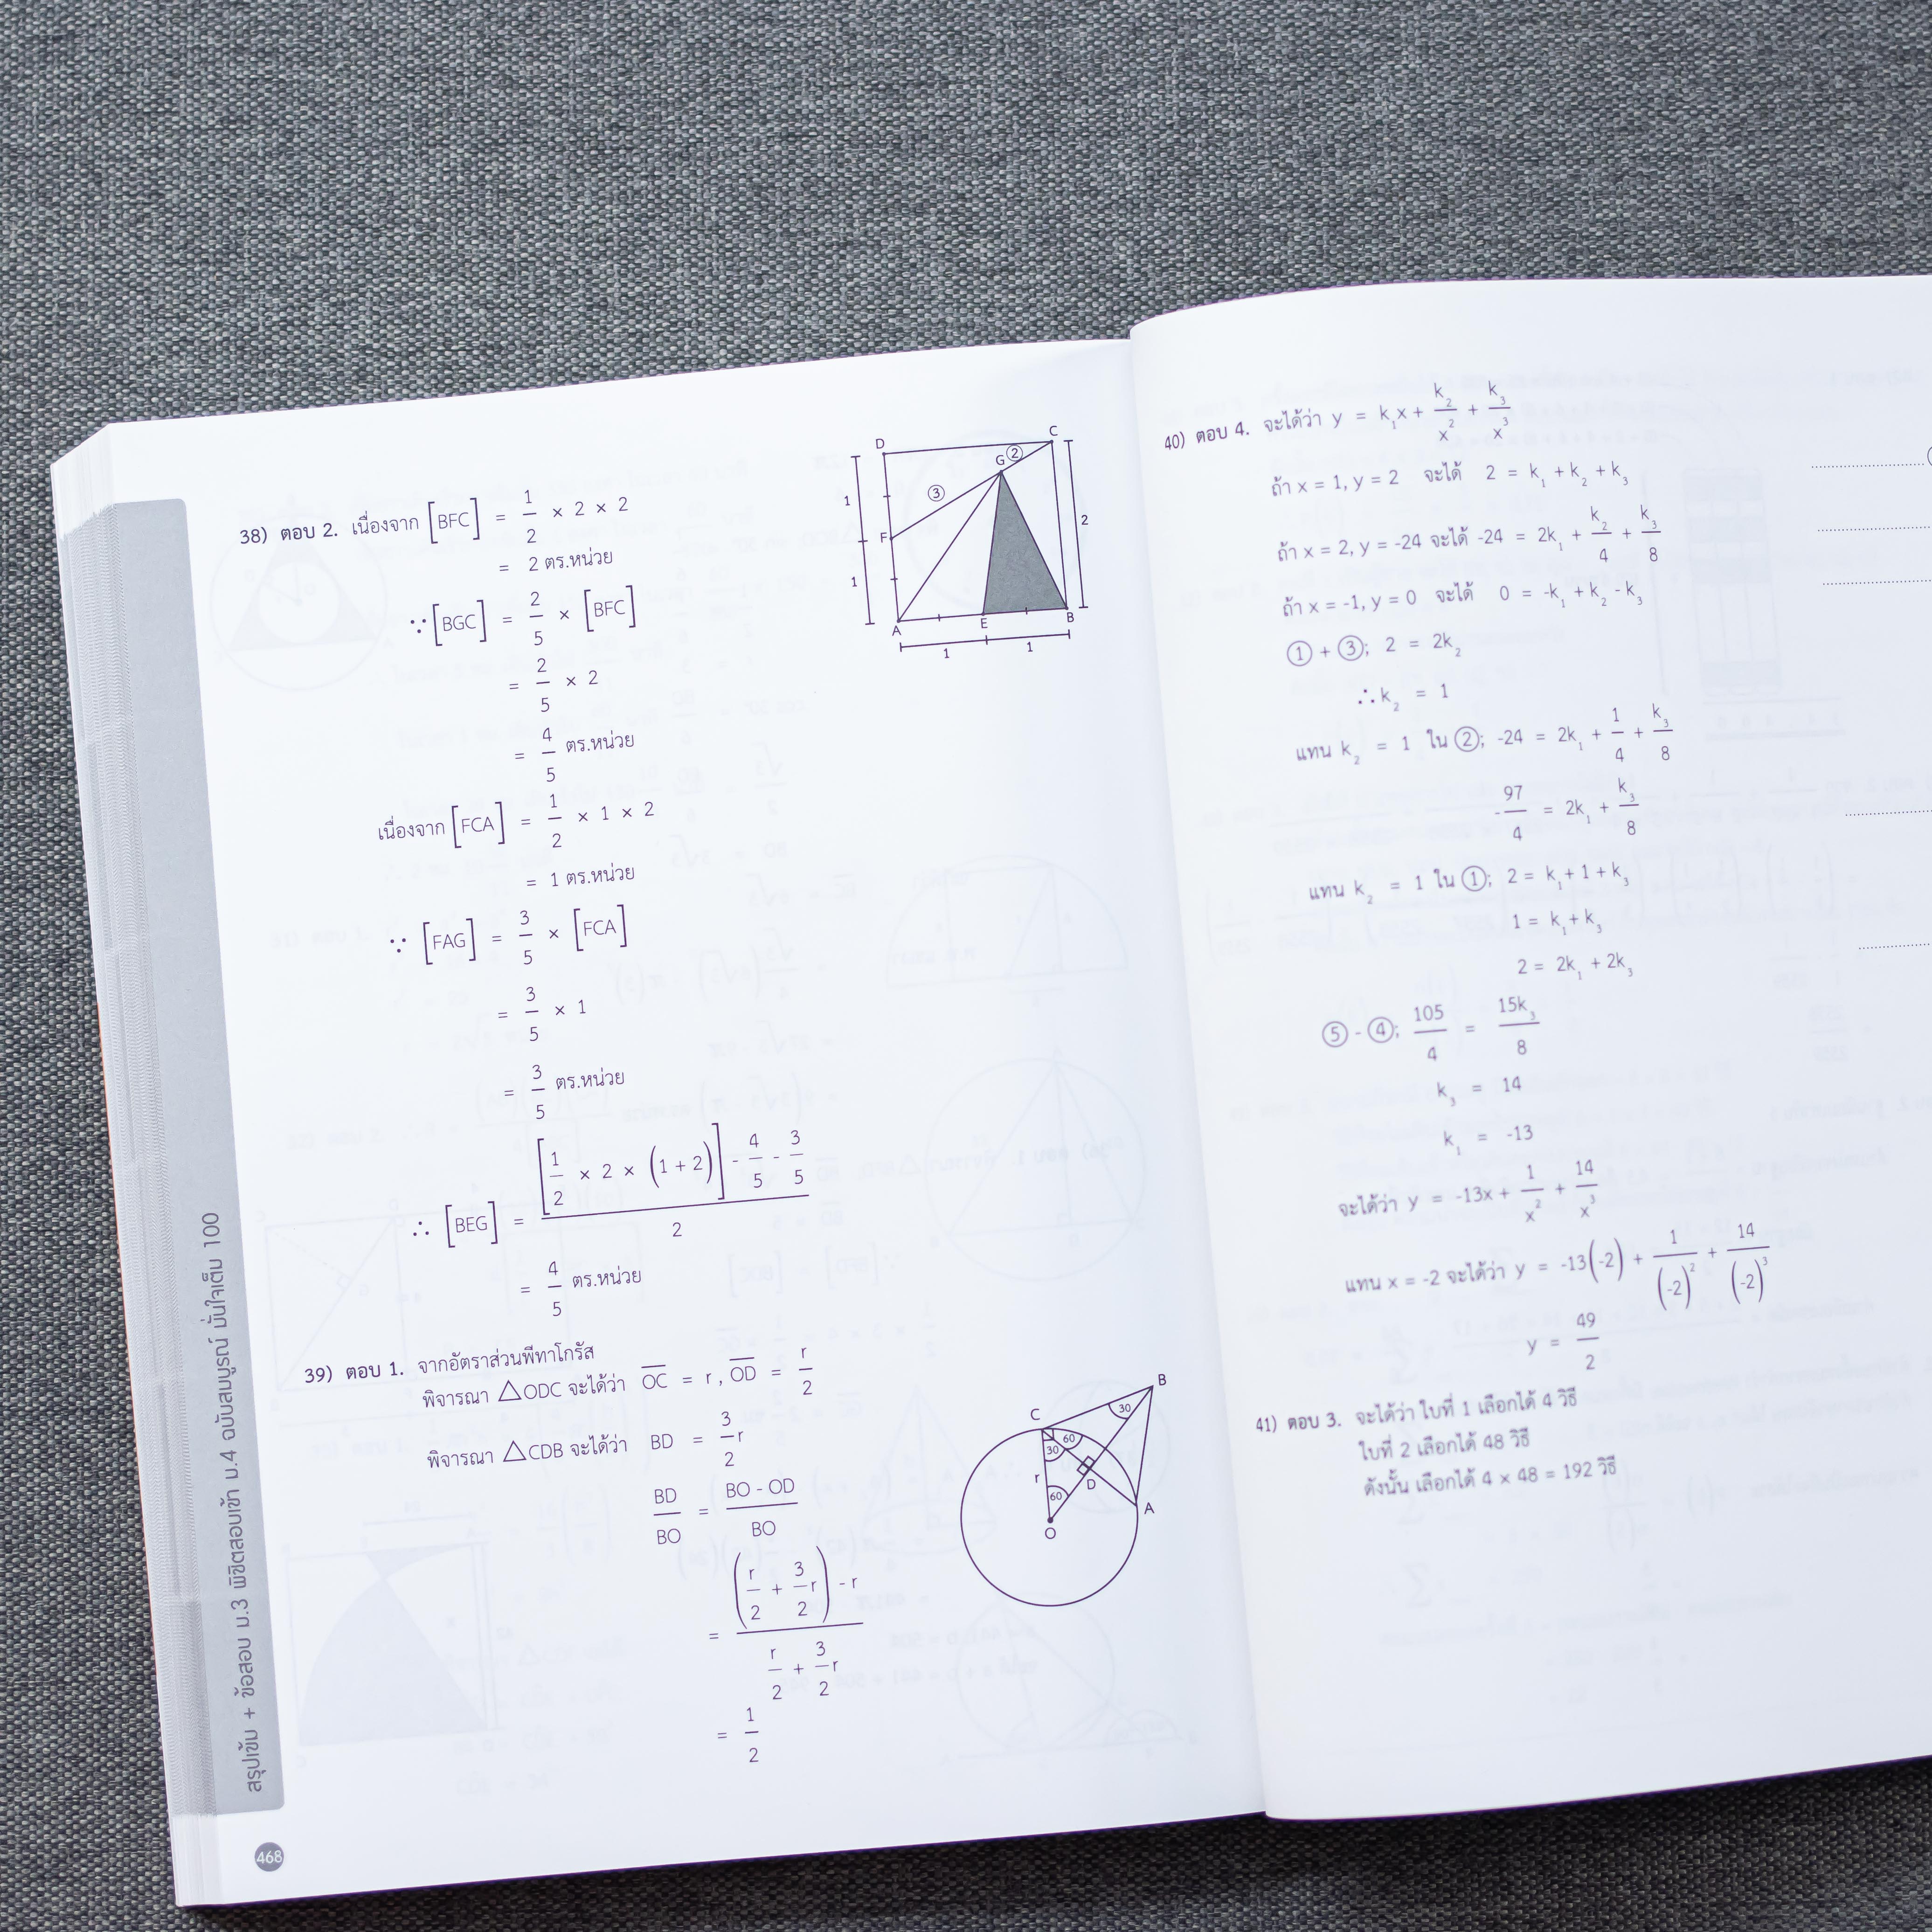 38) ตอบ 2. เนื่องจาก [BFC] = 1/2 × 2 × 2
= 2 ตร.หน่วย
∵ [BGC] = 2/5 × [BFC]
= 2/5 × 2
= 4/5 ตร.หน่วย
เนื่องจาก [FCA] = 1/2 × 1 × 2
= 1 ตร.หน่วย
∵ [FAG] = 3/5 × [FCA]
= 3/5 × 1
= 3/5 ตร.หน่วย
∴ [BEG] = ([1/2 × 2 × (1 + 2)] - 4/5 - 3/5) / 2
= 4/5 ตร.หน่วย
D C G ② ③ F A E B 1 1 2 1 1
39) ตอบ 1. จากอัตราส่วนพีทาโกรัส
พิจารณา △ODC จะได้ว่า OC = r , OD = r/2
พิจารณา △CDB จะได้ว่า BD = 3/2 r
BD/BO = (BO - OD)/BO
= ((r/2 + 3/2 r) - r) / (r/2 + 3/2 r)
= 1/2
B C 30 60 30 r D A 60 O
สรุปเข้ม + ข้อสอบ ม.3 พิชิตสอบเข้า ม.4 ฉบับสมบูรณ์ มั่นใจเต็ม 100
468
40) ตอบ 4. จะได้ว่า y = k₁x + k₂/x² + k₃/x³
ถ้า x = 1, y = 2 จะได้ 2 = k₁ + k₂ + k₃
ถ้า x = 2, y = -24 จะได้ -24 = 2k₁ + k₂/4 + k₃/8
ถ้า x = -1, y = 0 จะได้ 0 = -k₁ + k₂ - k₃
① + ③; 2 = 2k₂
∴ k₂ = 1
แทน k₂ = 1 ใน ②; -24 = 2k₁ + 1/4 + k₃/8
-97/4 = 2k₁ + k₃/8
แทน k₂ = 1 ใน ①; 2 = k₁ + 1 + k₃
1 = k₁ + k₃
2 = 2k₁ + 2k₃
⑤ - ④; 105/4 = 15k₃/8
k₃ = 14
k₁ = -13
จะได้ว่า y = -13x + 1/x² + 14/x³
แทน x = -2 จะได้ว่า y = -13(-2) + 1/(-2)² + 14/(-2)³
y = 49/2
41) ตอบ 3. จะได้ว่า ใบที่ 1 เลือกได้ 4 วิธี
ใบที่ 2 เลือกได้ 48 วิธี
ดังนั้น เลือกได้ 4 × 48 = 192 วิธี